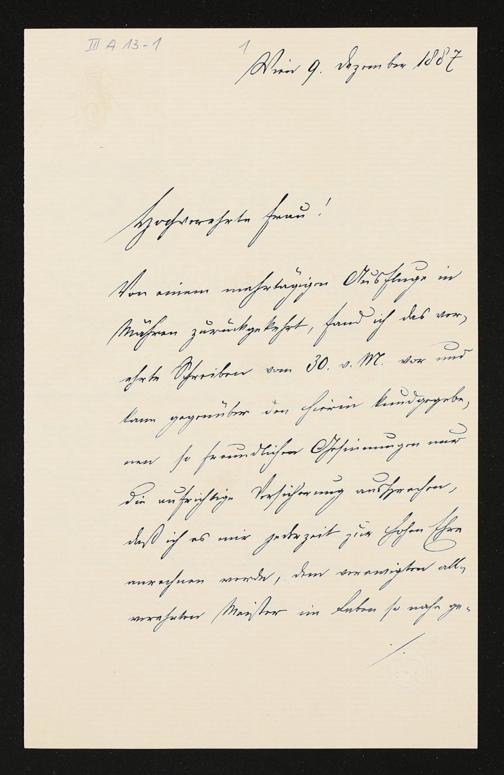 III A 13-1
1
Wien 9. Dezember 1887
Hochverehrte Frau!
Von einem mehrtägigen Ausfluge in
Mähren zurückgekehrt, fand ich das ver-
ehrte Schreiben vom 30. v. M. vor und
kann gegenüber den hierin kundgegebe-
nen so freundlichen Gesinnungen nur
die aufrichtige Versicherung aussprechen,
daß ich es mir jederzeit zur hohen Ehre
anrechnen werde, dem verewigten all-
verehrten Meister im Leben so nahe ge-
./.